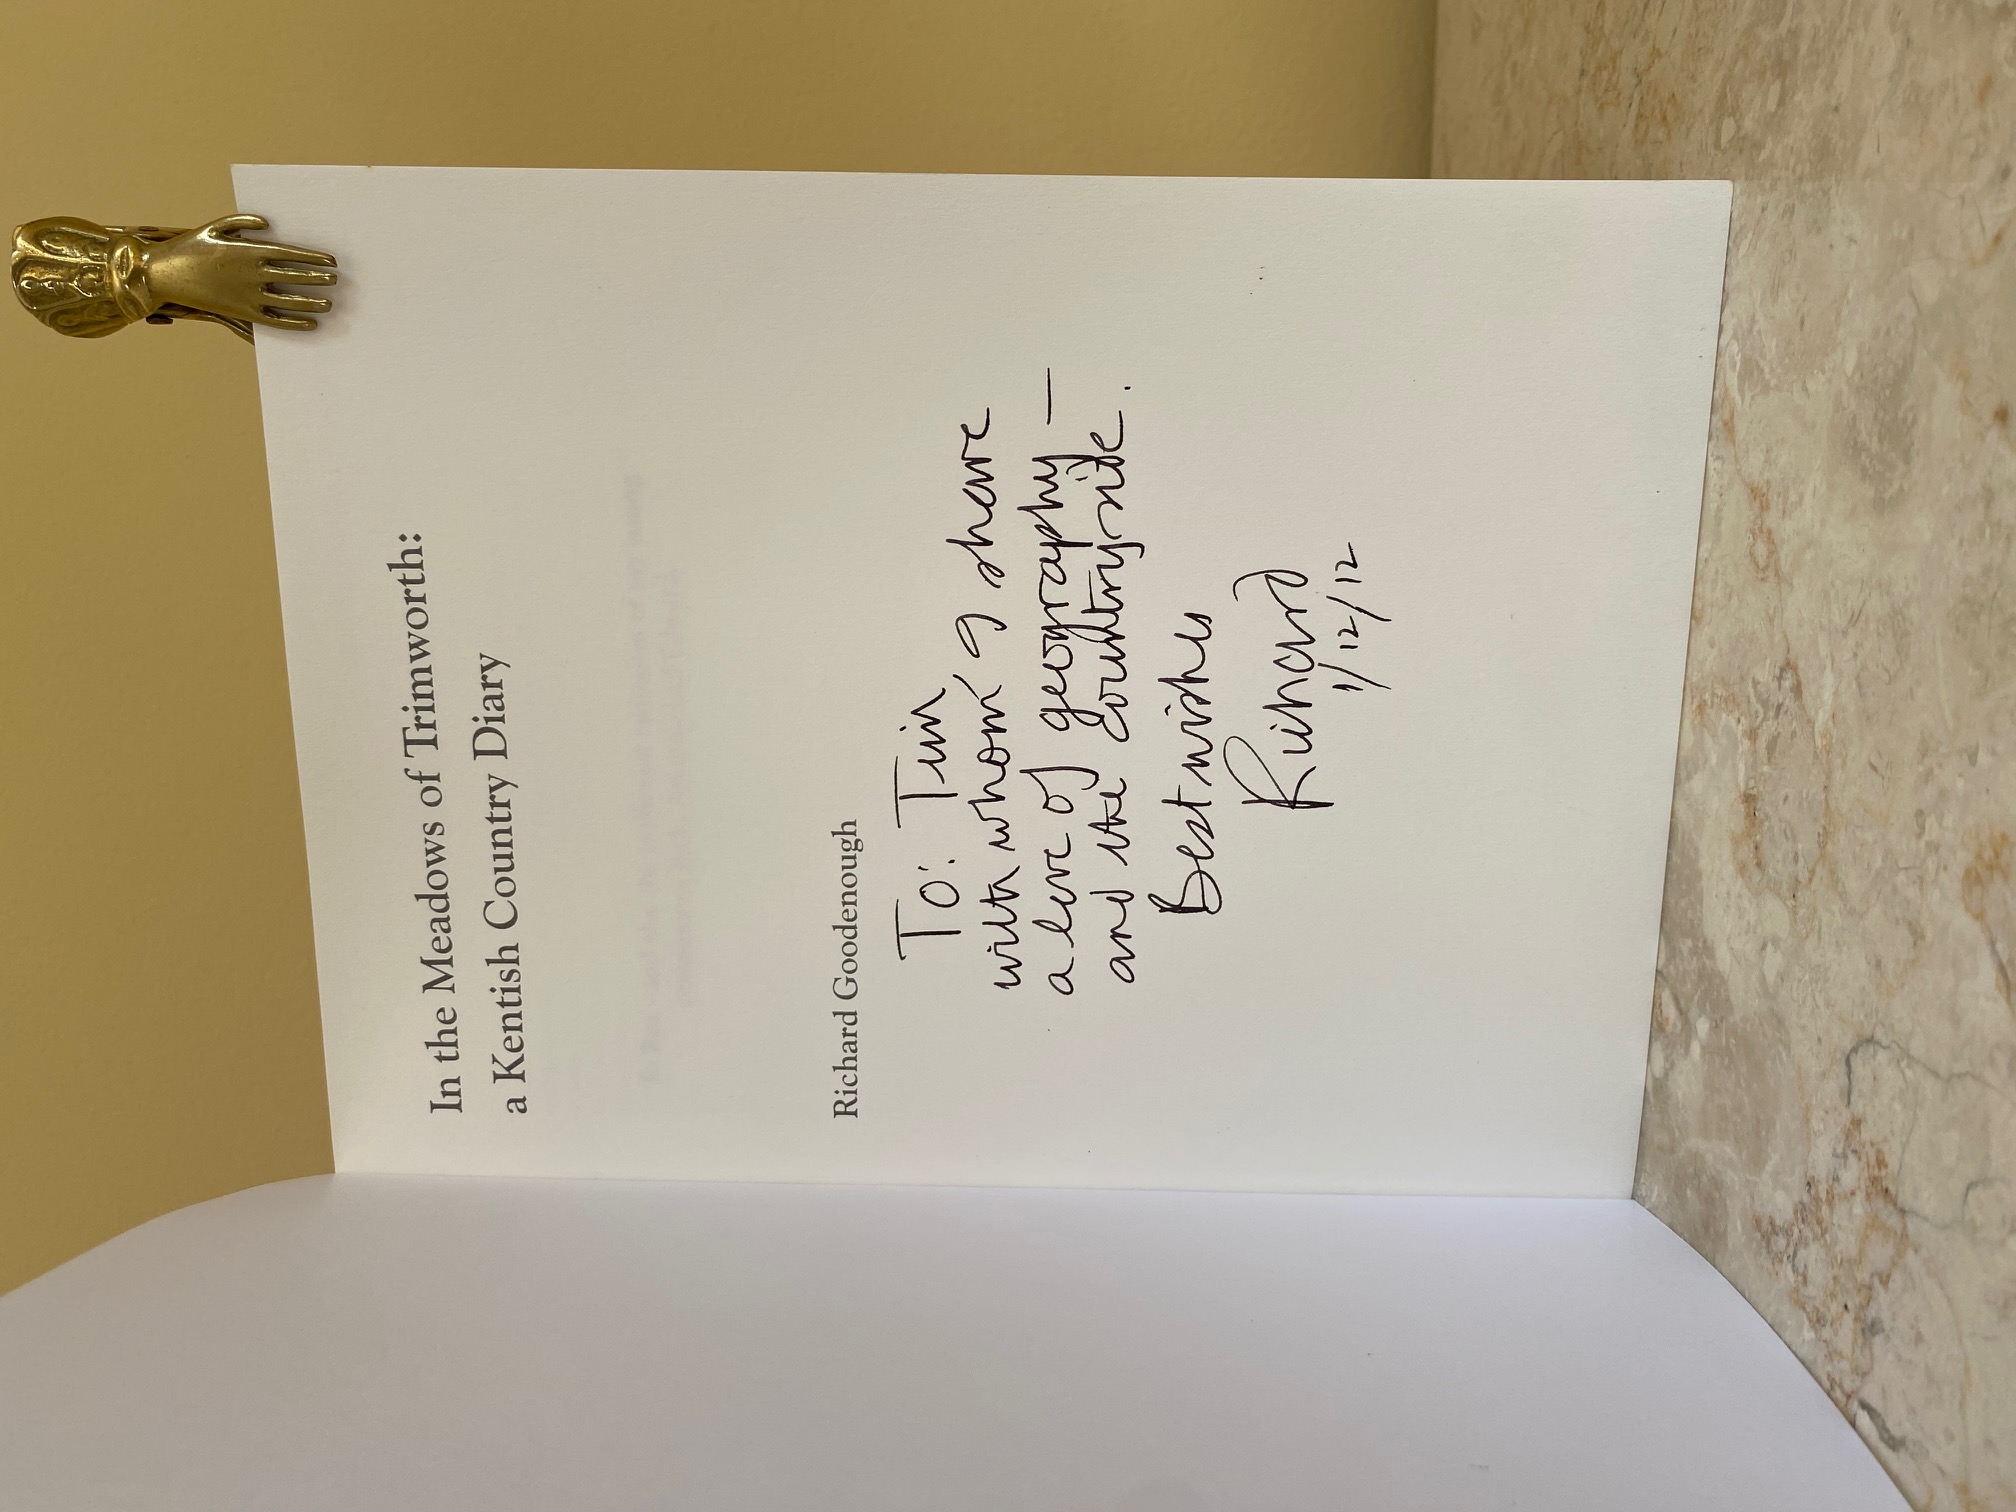 In the Meadows of Trimworth:
a Kentish Country Diary
Richard Goodenough
To: Tim
with whom I share
a love of geography —
and the countryside.
Best wishes
Richard
1/12/12